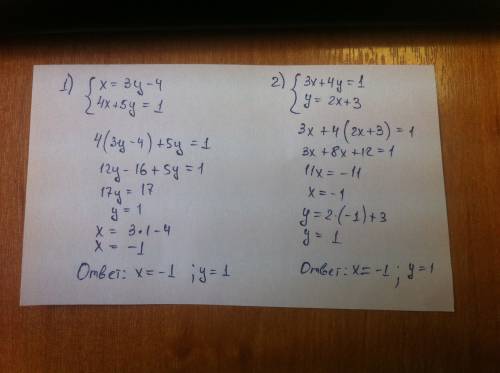 1) { x = 3y - 4
4x + 5y = 1
4(3y - 4) + 5y = 1
12y - 16 + 5y = 1
17y = 17
y = 1
x = 3 · 1 - 4
x = -1
Ответ: x = -1 ; y = 1
2) { 3x + 4y = 1
y = 2x + 3
3x + 4(2x + 3) = 1
3x + 8x + 12 = 1
11x = -11
x = -1
y = 2 · (-1) + 3
y = 1
Ответ: x = -1 ; y = 1